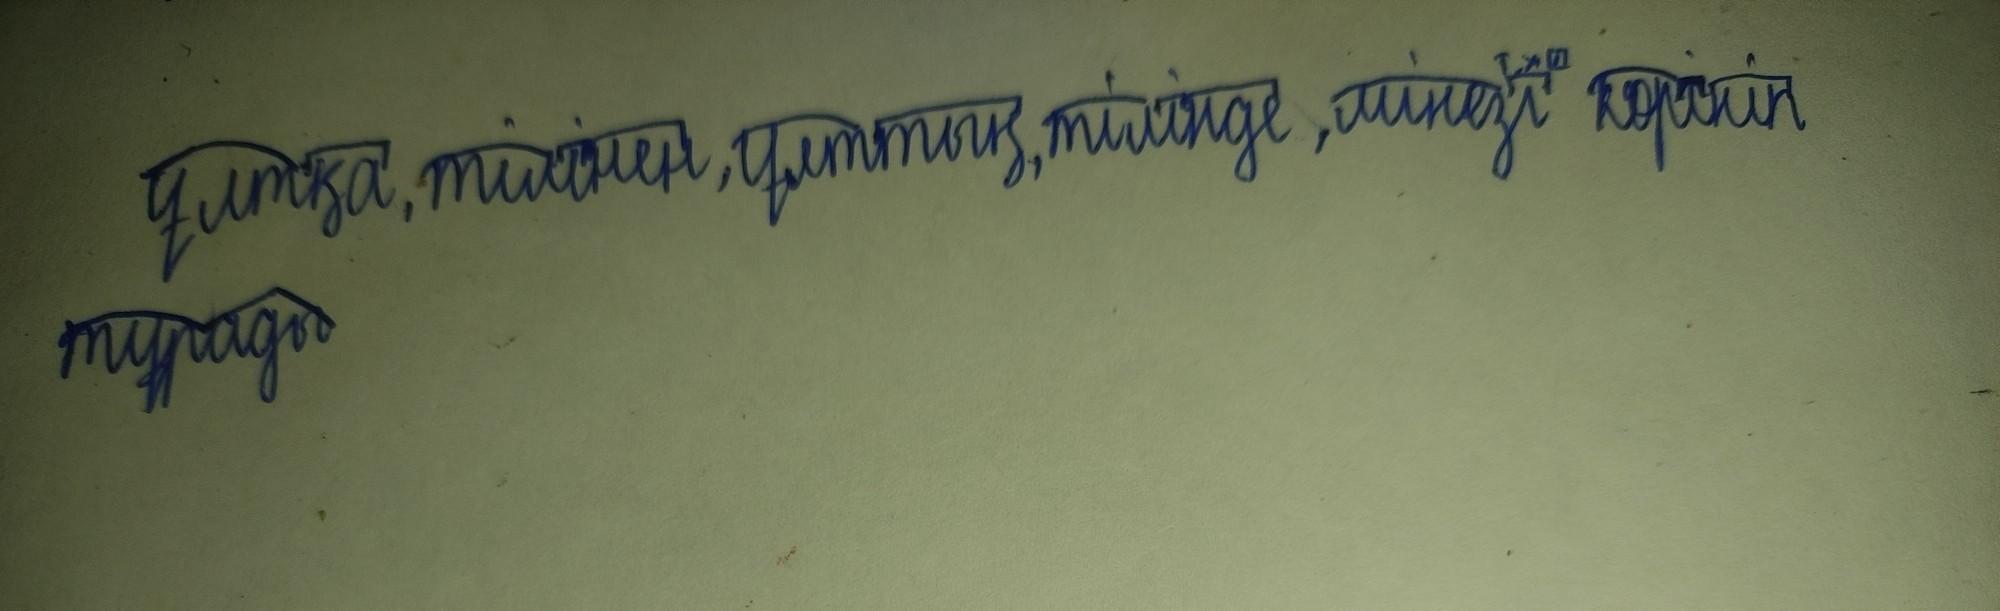 ұлтқа, тілімен, ұлттың, тілінде, мінезі көрініп
тұрады